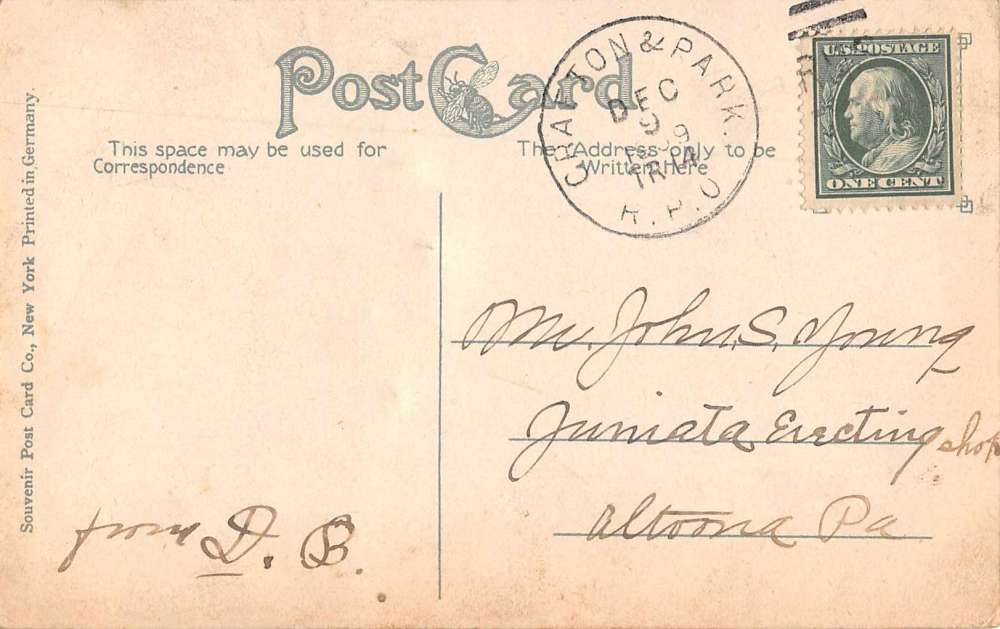 Post Card
This space may be used for
Correspondence
The Address only to be
Written Here
GRAFTON & PARK.
DEC
9
TR 14
R.P.O.
U.S. POSTAGE
ONE CENT
Souvenir Post Card Co., New York Printed in Germany.
Mr. John S. Young
Juniata Erecting shop
Altoona Pa
from D. B.